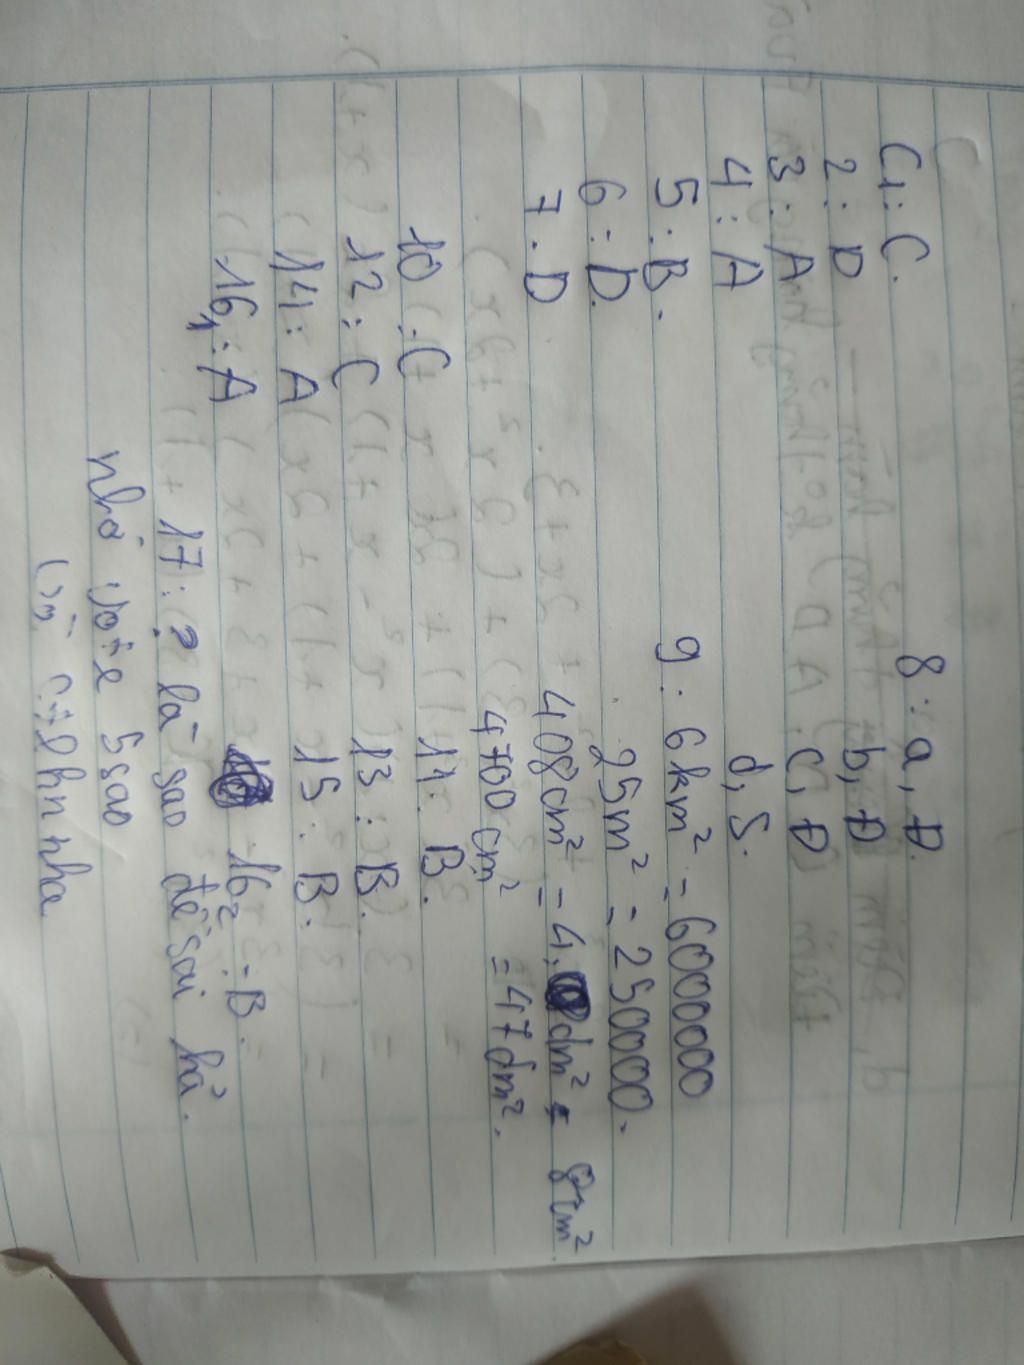 C1: C.
2: D
3: A
4: A
5: B.
6: D.
7. D
8: a, Đ.
b, Đ
c, Đ
d, S.
9: 6km² = 6000000
25m² = 250000.
408cm² = 4 dm² 8cm²
4700cm² = 47dm².
10: C
11: B.
12: C
13: B.
14: A
15: B.
16,: A
16₂: B.
17: ? là sao đề sai hả.
nhớ vote 5sao
và ctlhn nha